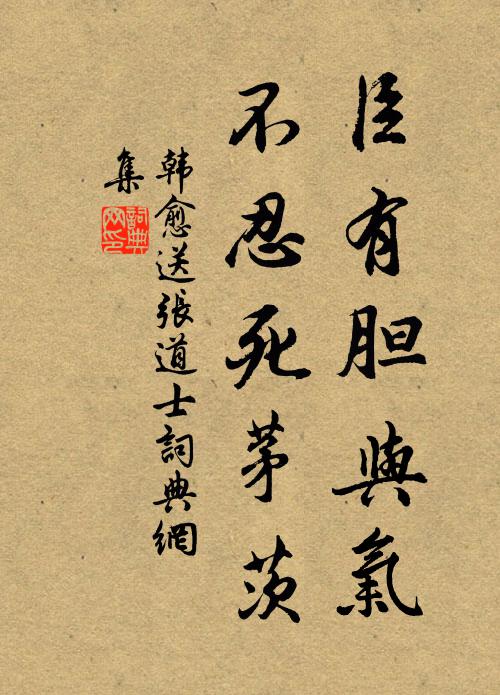 臣有胆與氣
不忍死茅茨
韩愈送張道士詞典網
集
詞典网印